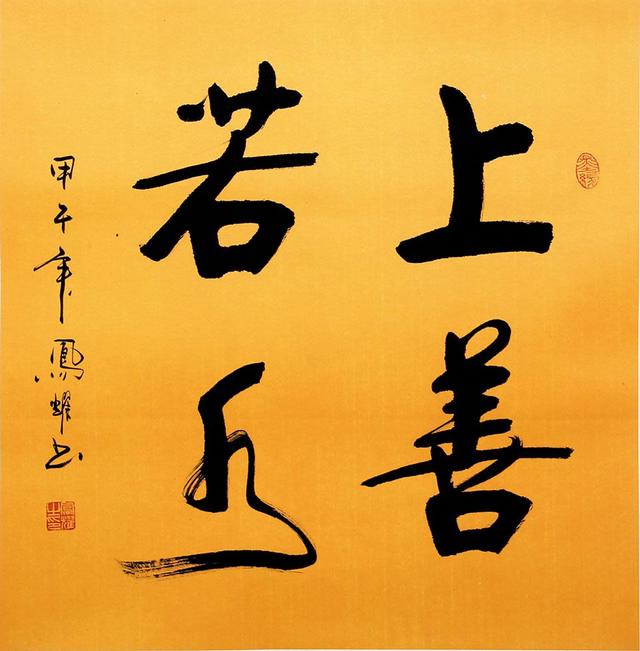 上善
若水
甲午年鳳耀书